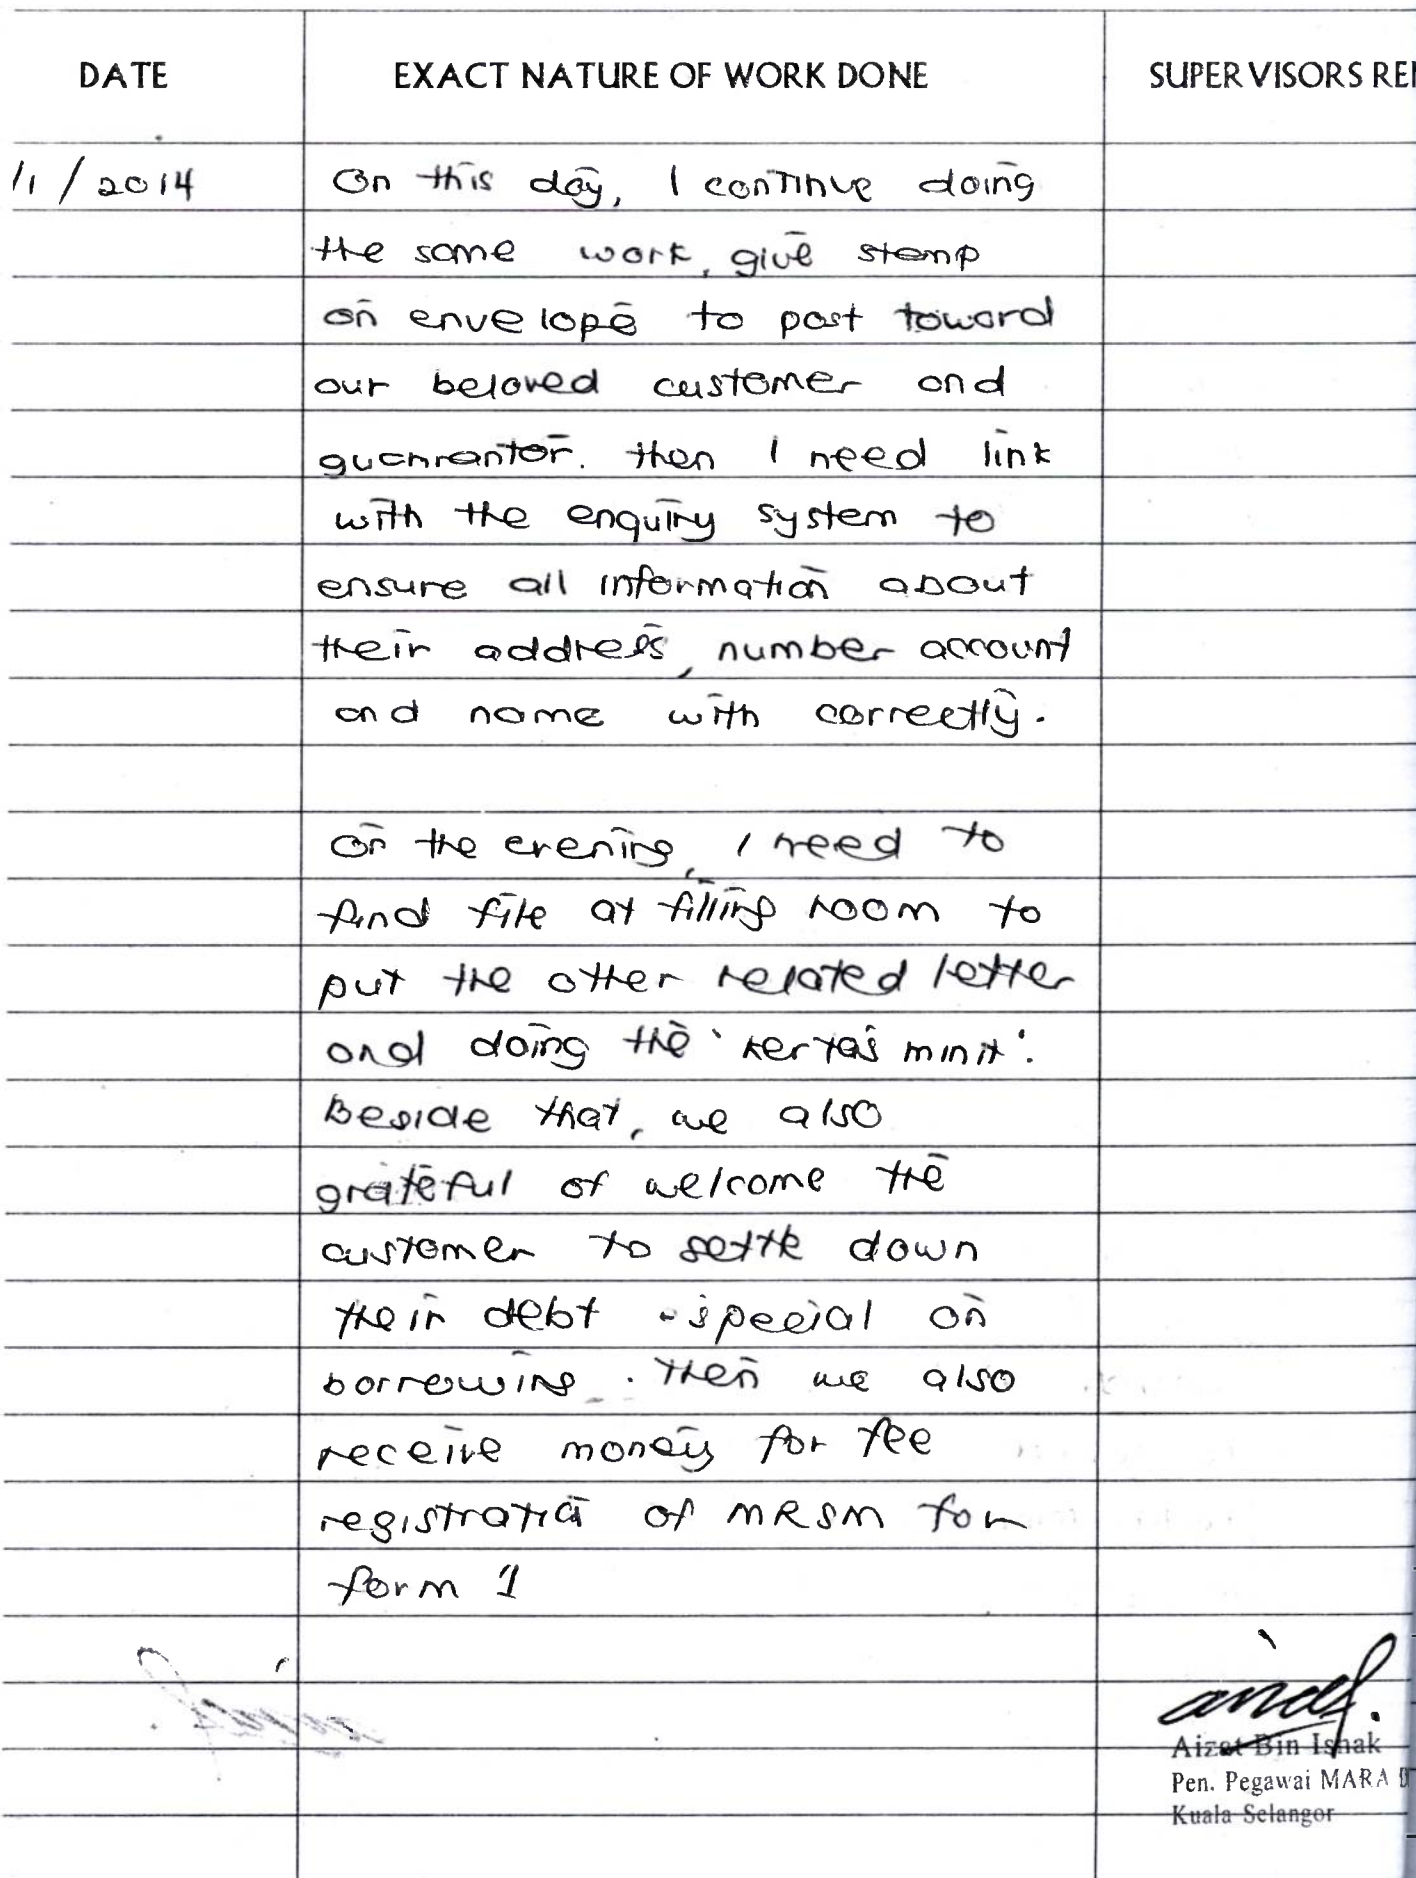 DATE EXACT NATURE OF WORK DONE SUPERVISORS RE
/1 / 2014 On this day, I continue doing
the same work, give stamp
on envelope to post toward
our beloved customer and
guanrantor. then I need link
with the enquiry system to
ensure all information about
their address, number account
and name with correctly.
On the evening, I need to
find file at filling room to
put the other related letter
and doing the 'kertas minit'.
Beside that, we also
grateful of welcome the
customer to settle down
their debt special on
borrowing. Then we also
receive money for fee
registration of MRSM for
form 1
Aizat Bin Ishak
Pen. Pegawai MARA D
Kuala Selangor